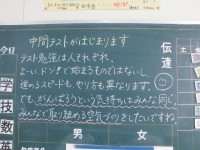 今日
中間テストがはじまります
テスト勉強は人それぞれ。
よーいドン!で始まるものではないし、
進めるスピードも やり方も異なります。
でも、がんばろうという気持ちはみんな同じ。
みんなで取り組める空気づくりをしたいですね
伝達
学
技
数
英
男
女